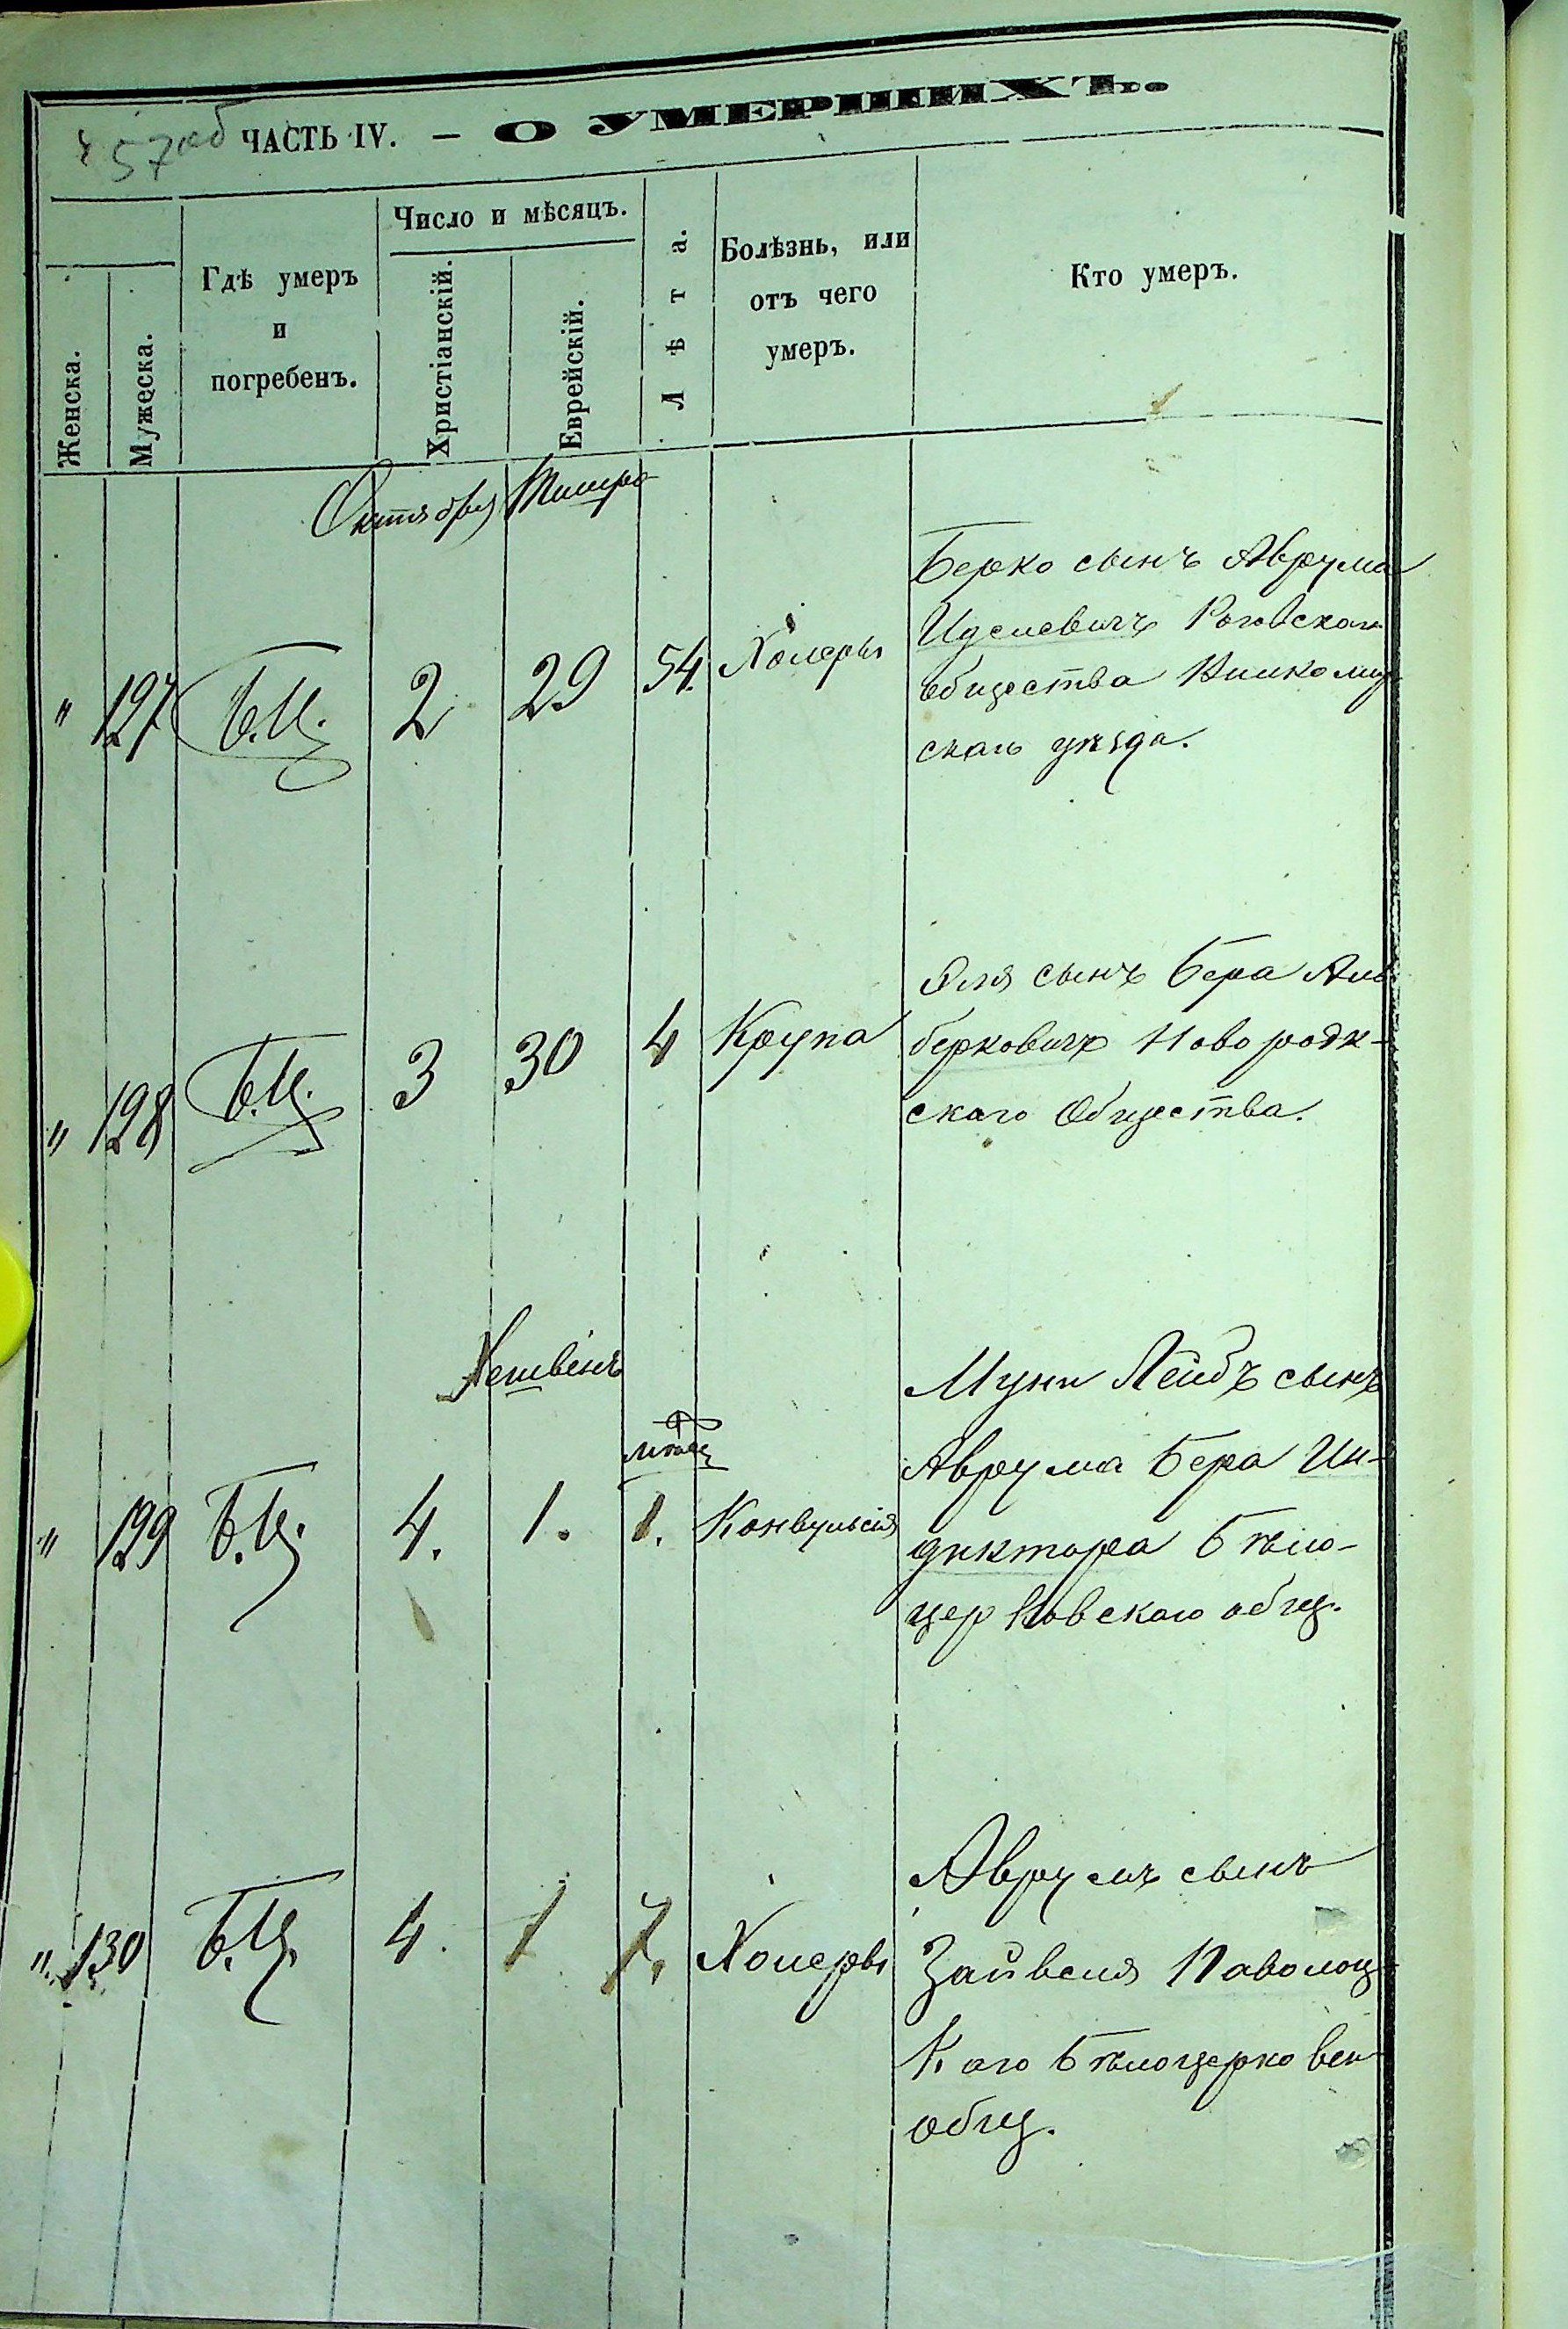 57 об ЧАСТЬ IV. — О УМЕРШИХЪ.
Женска.
Мужеска.
Гдѣ умеръ
и
погребенъ.
Число и мѣсяцъ.
Христіанскій.
Еврейскій.
Лѣта.
Болѣзнь, или
отъ чего
умеръ.
Кто умеръ.
Октября Тишре
" 127 Б.Ц. 2 29 54. Холеры
Берко сынъ Аврума
Иделевичъ Роговскаго
общества Вилкомир
скаго уѣзда.
" 128 Б.Ц. 3 30 4 Крупа
Эля сынъ Бера Аль
берковичъ Новородк-
скаго Общества.
Хешвенъ
" 129 Б.Ц. 4. 1. мѣсяц 1. Конвульсія
Муни Лейбъ сынъ
Аврума Бера Ин-
диктора Бѣло-
церковскаго общ.
" 130 Б.Ц. 4. 1 7. Холеры
Аврумъ сынъ
Зайвеля Паволоц-
Каго Бѣлоцерковск
общ.